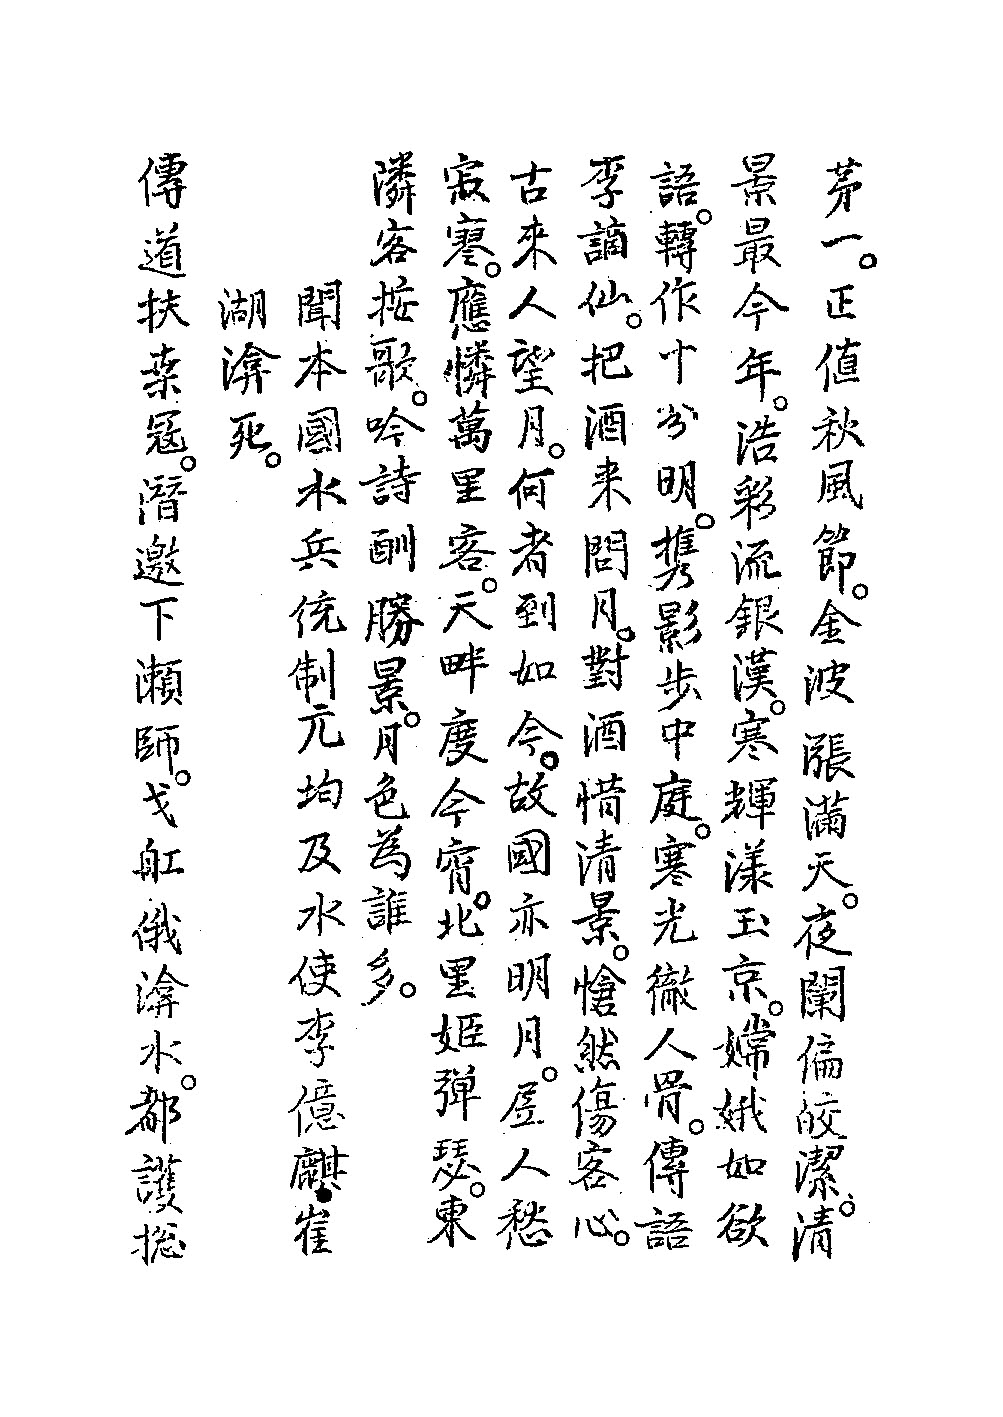 茅一。正值秋風節。金波漲滿天。夜闌偏皎潔。清
景最今年。浩彩流銀漢。寒輝漾玉京。嫦娥如欲
語。轉作十分明。携影步中庭。寒光徹人骨。傳語
李謫仙。把酒来問月。對酒惜清景。愴然傷客心。
古來人望月。何者到如今。故國亦明月。居人愁
寂寥。應憐萬里客。天畔度今宵。北里姬弹瑟。東
隣客按歌。吟詩酬勝景。月色為誰多。
聞本國水兵統制元均及水使李億麒。崔
湖渰死。
傳道扶桒冦。潛邀下瀬師。戈舡俄渰水。都護揔